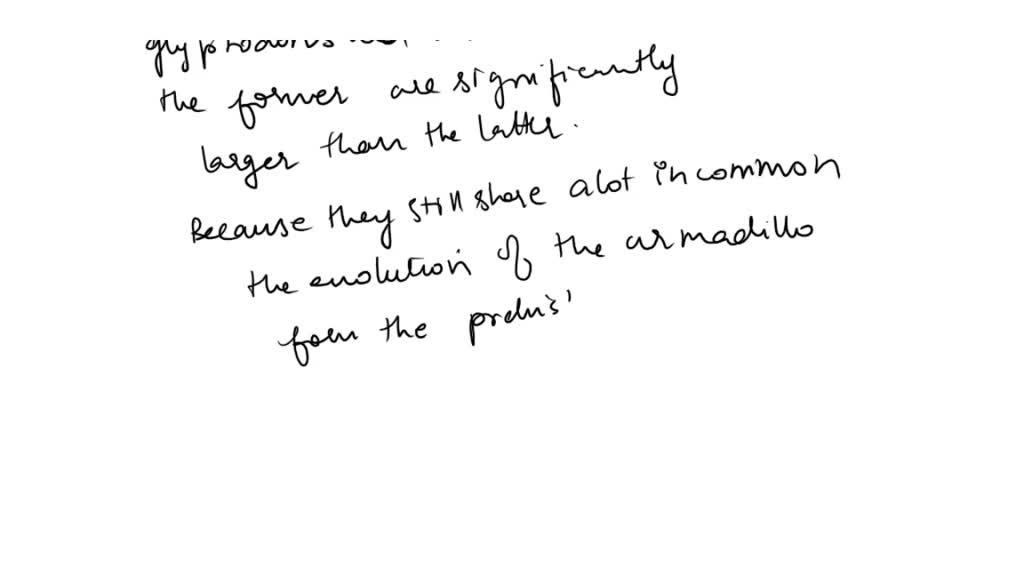 the former are significantly
larger than the latter.
Because they still share a lot in common
the evolution of the armadillo
from the